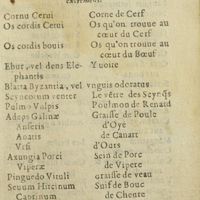 Cornu Cerui Corne de Cerf
Os cordis Cerui Os qu'on trouue au
cœur du Cerf
Os cordis bouis Os qu'on trouue au
cœur du Bœuf
Ebur, vel dens Ele- Yuoire
phantis
Blatta Byzantia, vel vnguis odoratus
Scyncorum venter Le vẽtre des Scynqs
Pulmo Vulpis Poulmon de Renard
Adeps Galinæ Graisse de Poule
Anseris d'Oye
Anatis de Canart
Vrsi d'Ours
Axungia Porci Sein de Porc
Viperæ de Vipere
Pinguedo Vituli graisse de veau
Seuum Hircinum Suif de Bouc
Caprinum de Cheure